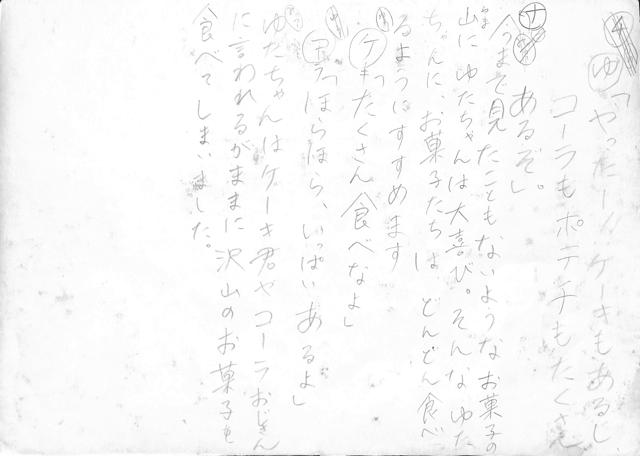 ゆ「やったー！ケーキもあるし、
コーラもポテチもたくさん
あるぞ」
ナ 今まで見たこともないようなお菓子の
山にゆたちゃんは大喜び。そんなゆた
ちゃんに、お菓子たちはどんどん食べ
るようにすすめます
ケ「たくさん食べなよ」
ア「ほらほら、いっぱいあるよ」
ゆたちゃんはケーキ君やコーラおじさん
に言われるがままに沢山のお菓子を
食べてしまいました。